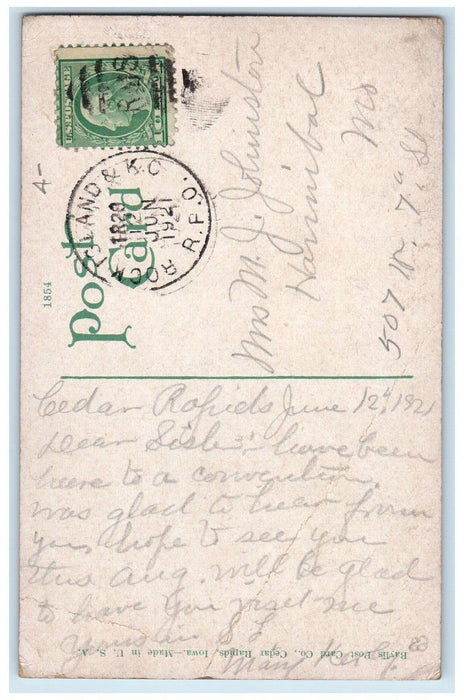 U.S. POSTAGE
ROCK ISLAND & K.C. R.P.O.
1829
12
JUN
1921
R.M.S.
4-
1854
Post
Card
Mrs M. J. Johnston
Hannibal
Mo
507 N. 7" St
Cedar Rapids June 12" 1921
Dear Sister; have been
here to a convention.
was glad to hear from
you hope to see you
this Aug. will be glad
to have you visit me
Yours in
Mary
Baylis Post Card Co., Cedar Rapids, Iowa.—Made in U. S. A.